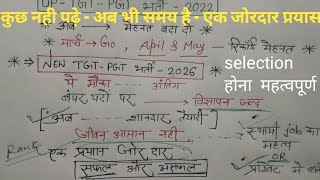 UP- TGT-PGT भर्ती - 2022
कुछ नही पढे - अब भी समय है - एक जोरदार प्रयास
मेहनत बढा दो
मार्च → Go, April & May — रिकॉर्ड मेहनत
NEW TGT-PGT भर्ती - 2026
ये मौका अंतिम
बंपर पदों पर → विज्ञापन जल्द
अब शानदार तैयारी
जीवन आसान नही
Rank
एक प्रयास जोरदार
सफल और असफल
selection
होना महत्वपूर्ण
स्थायी Job का
महत्व
OR
प्राइवेट में